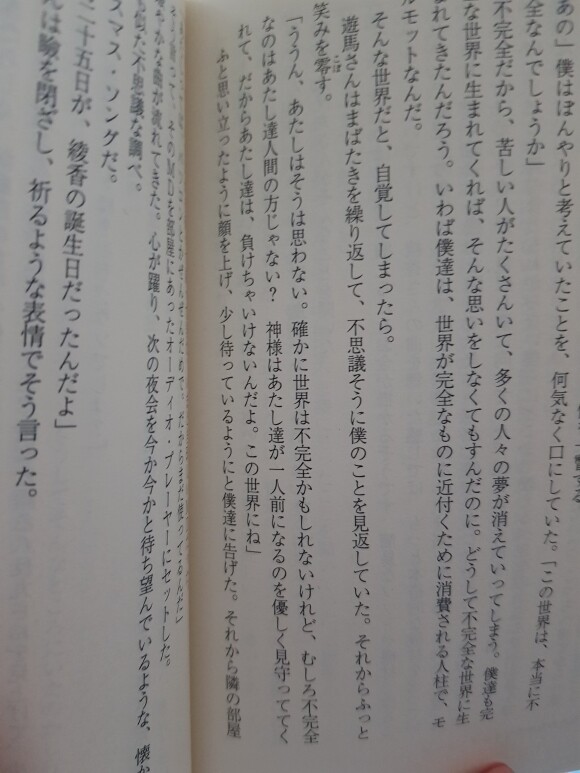 あの」僕はぼんやりと考えていたことを、何気なく口にしていた。「この世界は、本当に不
全なんでしょうか」
不完全だから、苦しい人がたくさんいて、多くの人々の夢が消えていってしまう。僕達も完
な世界に生まれてくれば、そんな思いをしなくてもすんだのに。どうして不完全な世界に生
まれてきたんだろう。いわば僕達は、世界が完全なものに近付くために消費される人柱で、モ
ルモットなんだ。
そんな世界だと、自覚してしまったら。
遊馬さんはまばたきを繰り返して、不思議そうに僕のことを見返していた。それからふっと
笑みを零す。
「ううん、あたしはそうは思わない。確かに世界は不完全かもしれないけれど、むしろ不完全
なのはあたし達人間の方じゃない？　神様はあたし達が一人前になるのを優しく見守っててく
れて、だからあたし達は、負けちゃいけないんだよ。この世界にね」
ふと思い立ったように顔を上げ、少し待っているようにと僕達に告げた。それから隣の部屋
MDを部屋にあったオーディオ・プレーヤーにセットした。
な曲が流れてきた。心が躍り、次の夜会を今か今かと待ち望んでいるような、懐か
似た不思議な調べ。
スマス・ソングだ。
二十五日が、綾香の誕生日だったんだよ」
んは瞼を閉ざし、祈るような表情でそう言った。